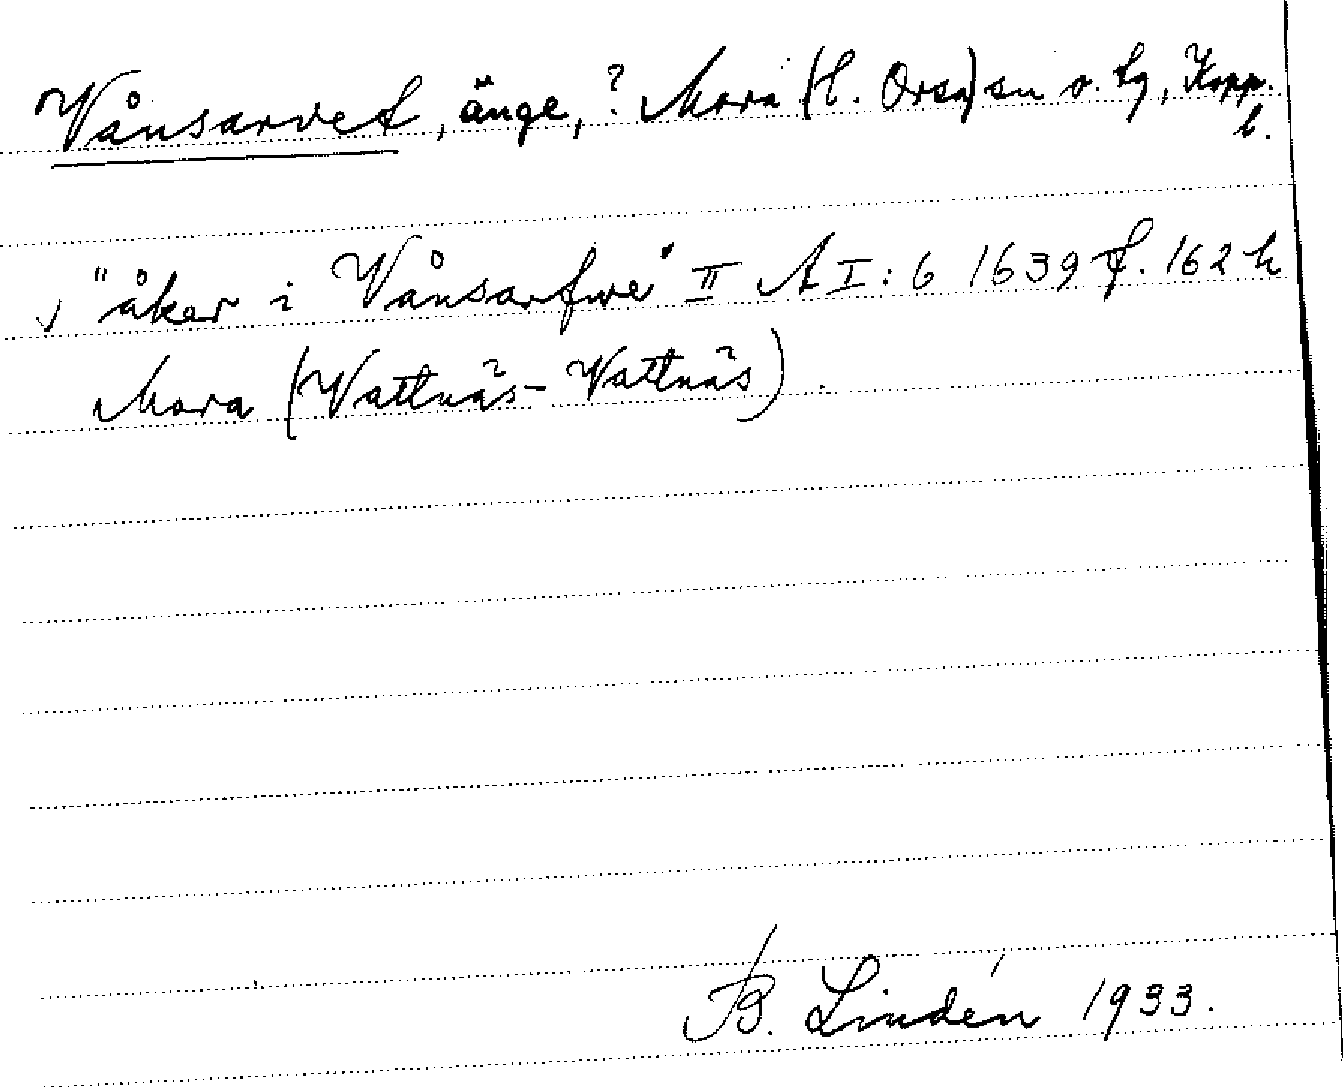 Vånsarvet, änge, ? Mora (l. Orsa) sn o. tg, Kopp.
l.
√ "åker i Vånsarfwe" II A I: 6 1639 f. 162 h
Mora (Vattnäs - Vattnäs).
B. Lindén 1933.